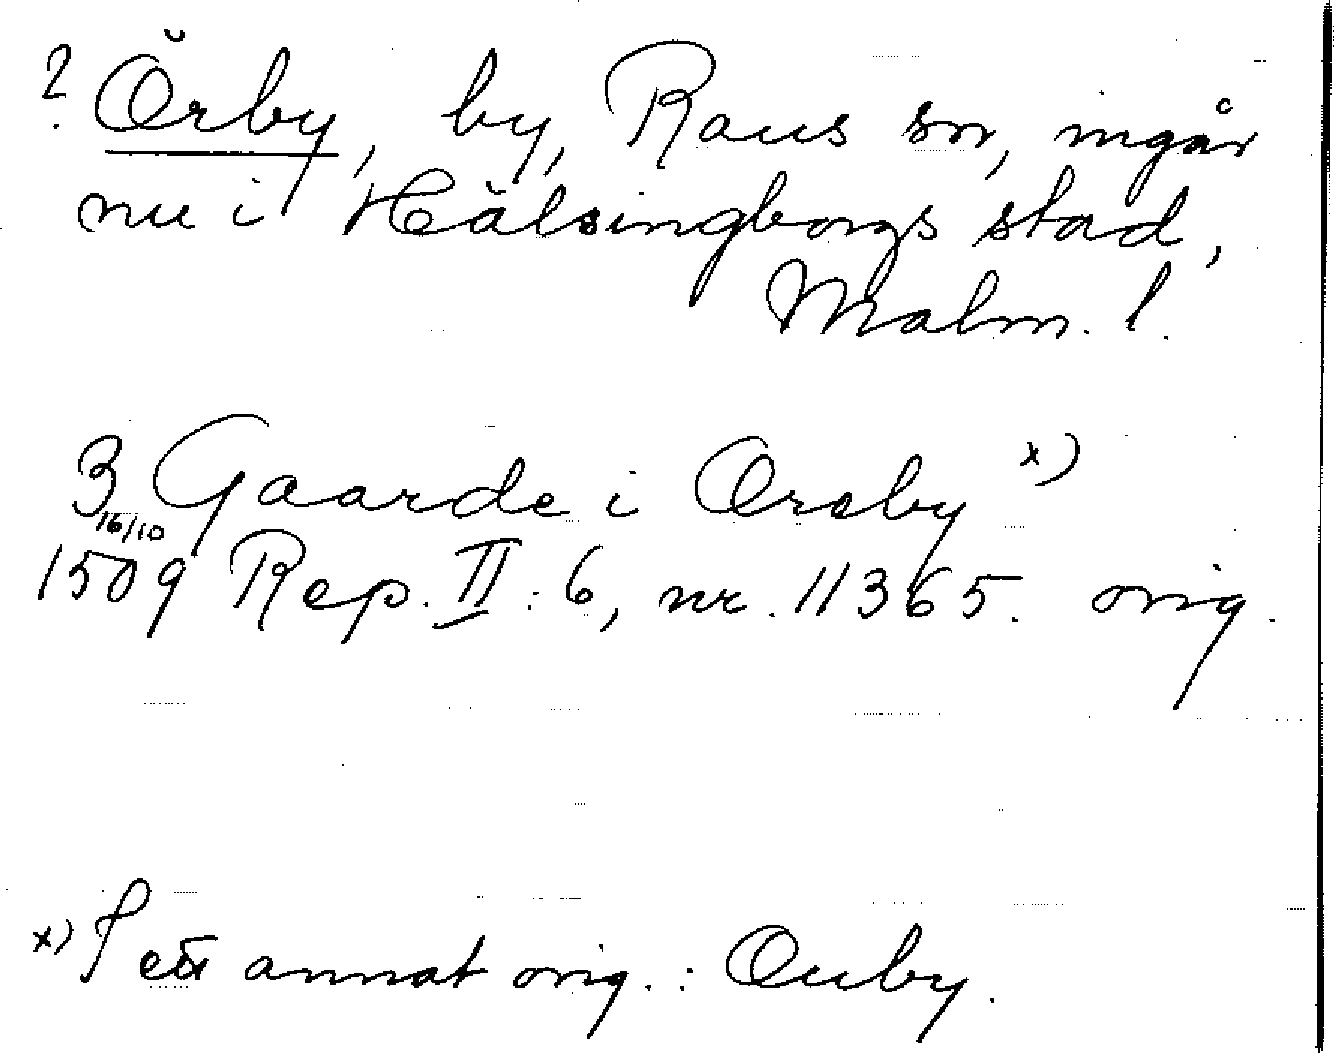 ? Örby, by, Raus sn, ingår
nu i Hälsingborgs stad,
Malm. l.
3 Gaarde i Oreby x)
16/10
1509 Rep. II : 6, nr. 11365. orig.
x) I ett annat orig. : Ouby.